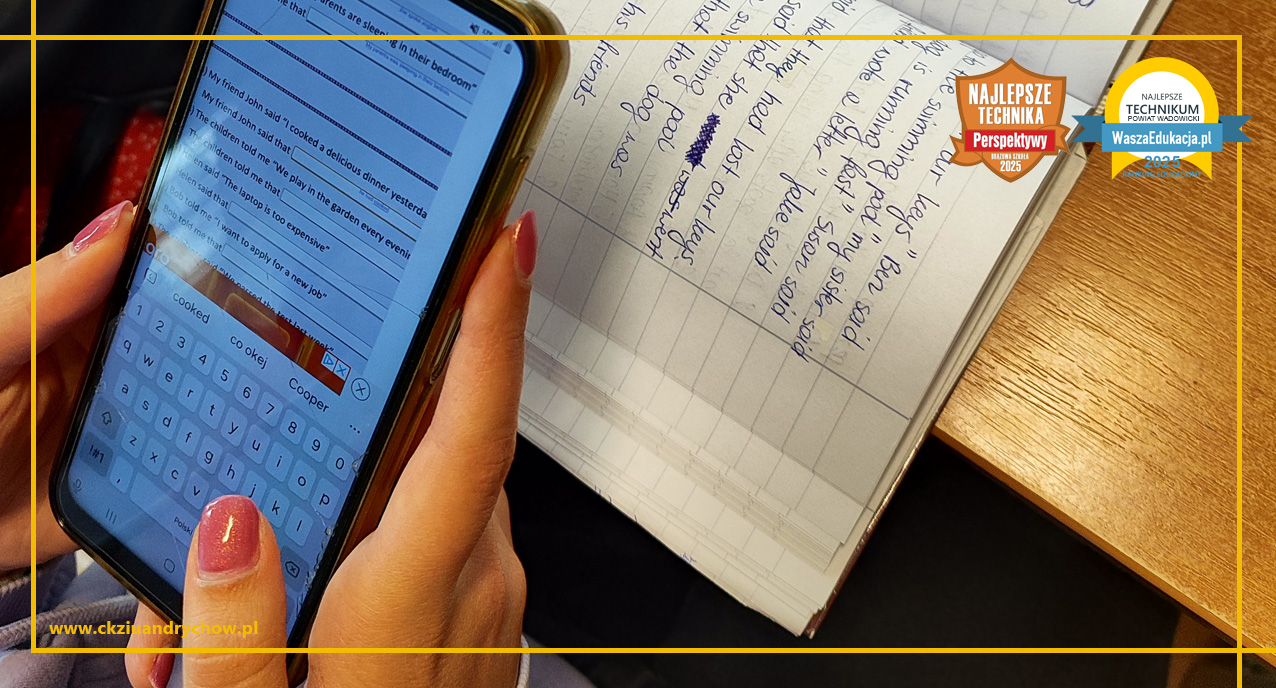 arents are sleeping in their bedroom"
me that
) My friend John said "I cooked a delicious dinner yesterda
My friend John said that
) The children told me "We play in the garden every evenin
The children told me that
Helen said "The laptop is too expensive"
Helen said that
Bob told me "I want to apply for a new job"
Bob told me that
said "We passed the test last week"
cooked
co okej
Cooper
1 2 3 4 5 6 7 8 9 0
q w e r t y u i o p
a s d f g h j k l
z x c v
!#1 ,
Polski
our keys" Ben said
the swimming pool" my sister said
is running fast" Susan said
wrote a letter" Jake said
that they
had lost our keys
said that she
went
swimming pool
that the dog was
his friends
NAJLEPSZE
TECHNIKA
Perspektywy
BRĄZOWA SZKOŁA
2025
NAJLEPSZE
TECHNIKUM
POWIAT WADOWICKI
WaszaEdukacja.pl
2025
www.ckziuandrychow.pl